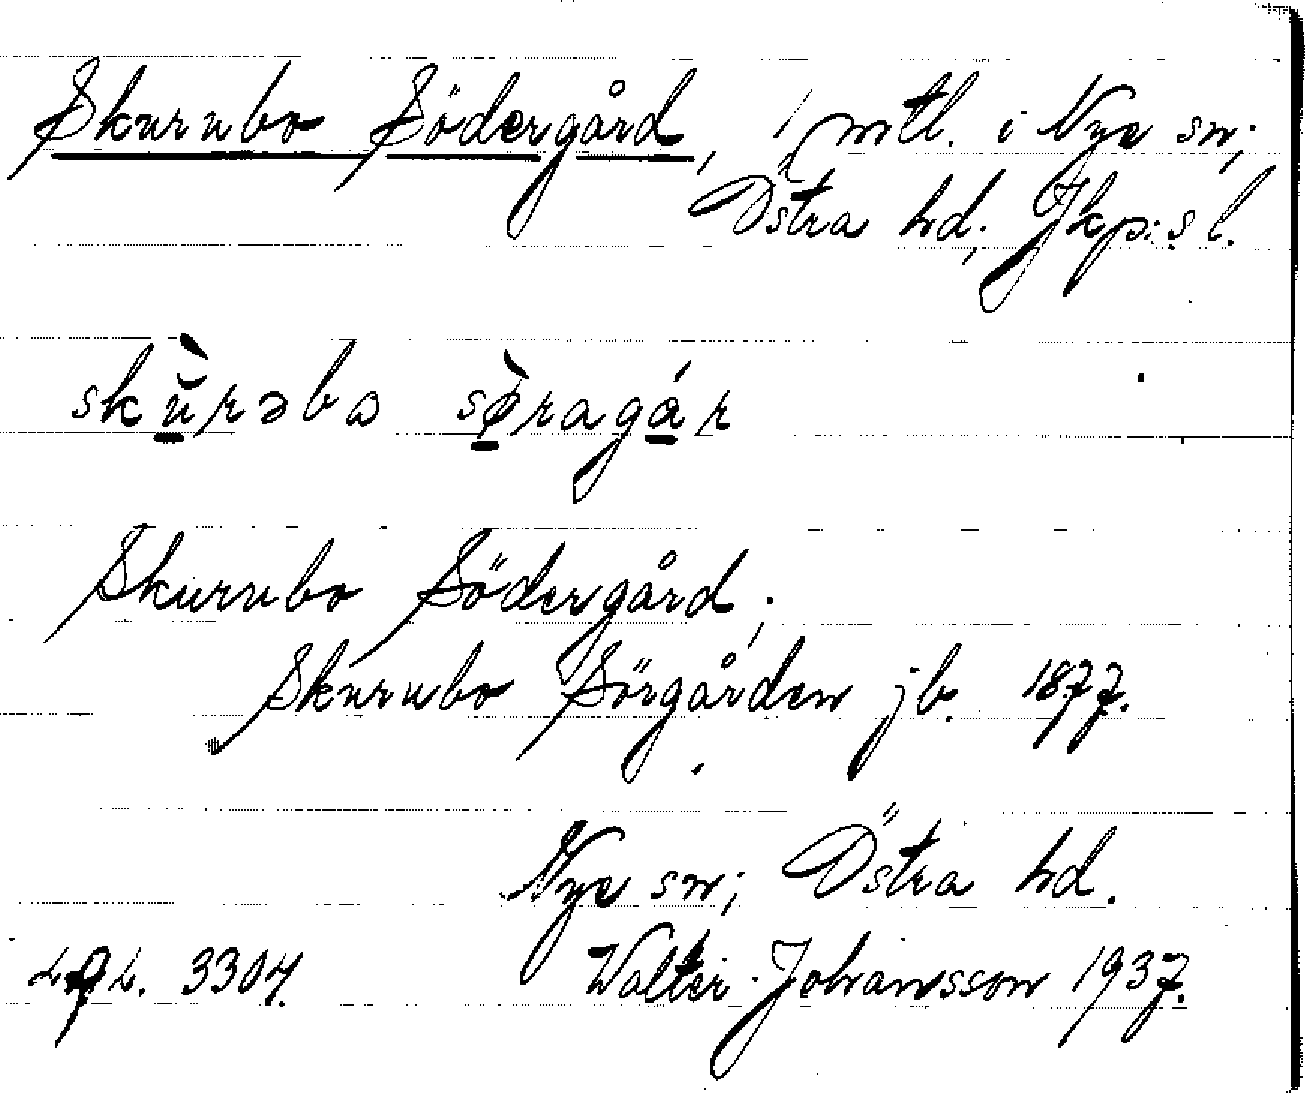 Skurubo Södergård, 1/1 mtl. i Nye sn;
Östra hd; Jkp:s l.
skùrəbo sø̀ragár
Skurubo Södergård;
Skurubo Sörgården jb. 1877.
Nye sn; Östra hd.
3304. Walter Johansson 1937.